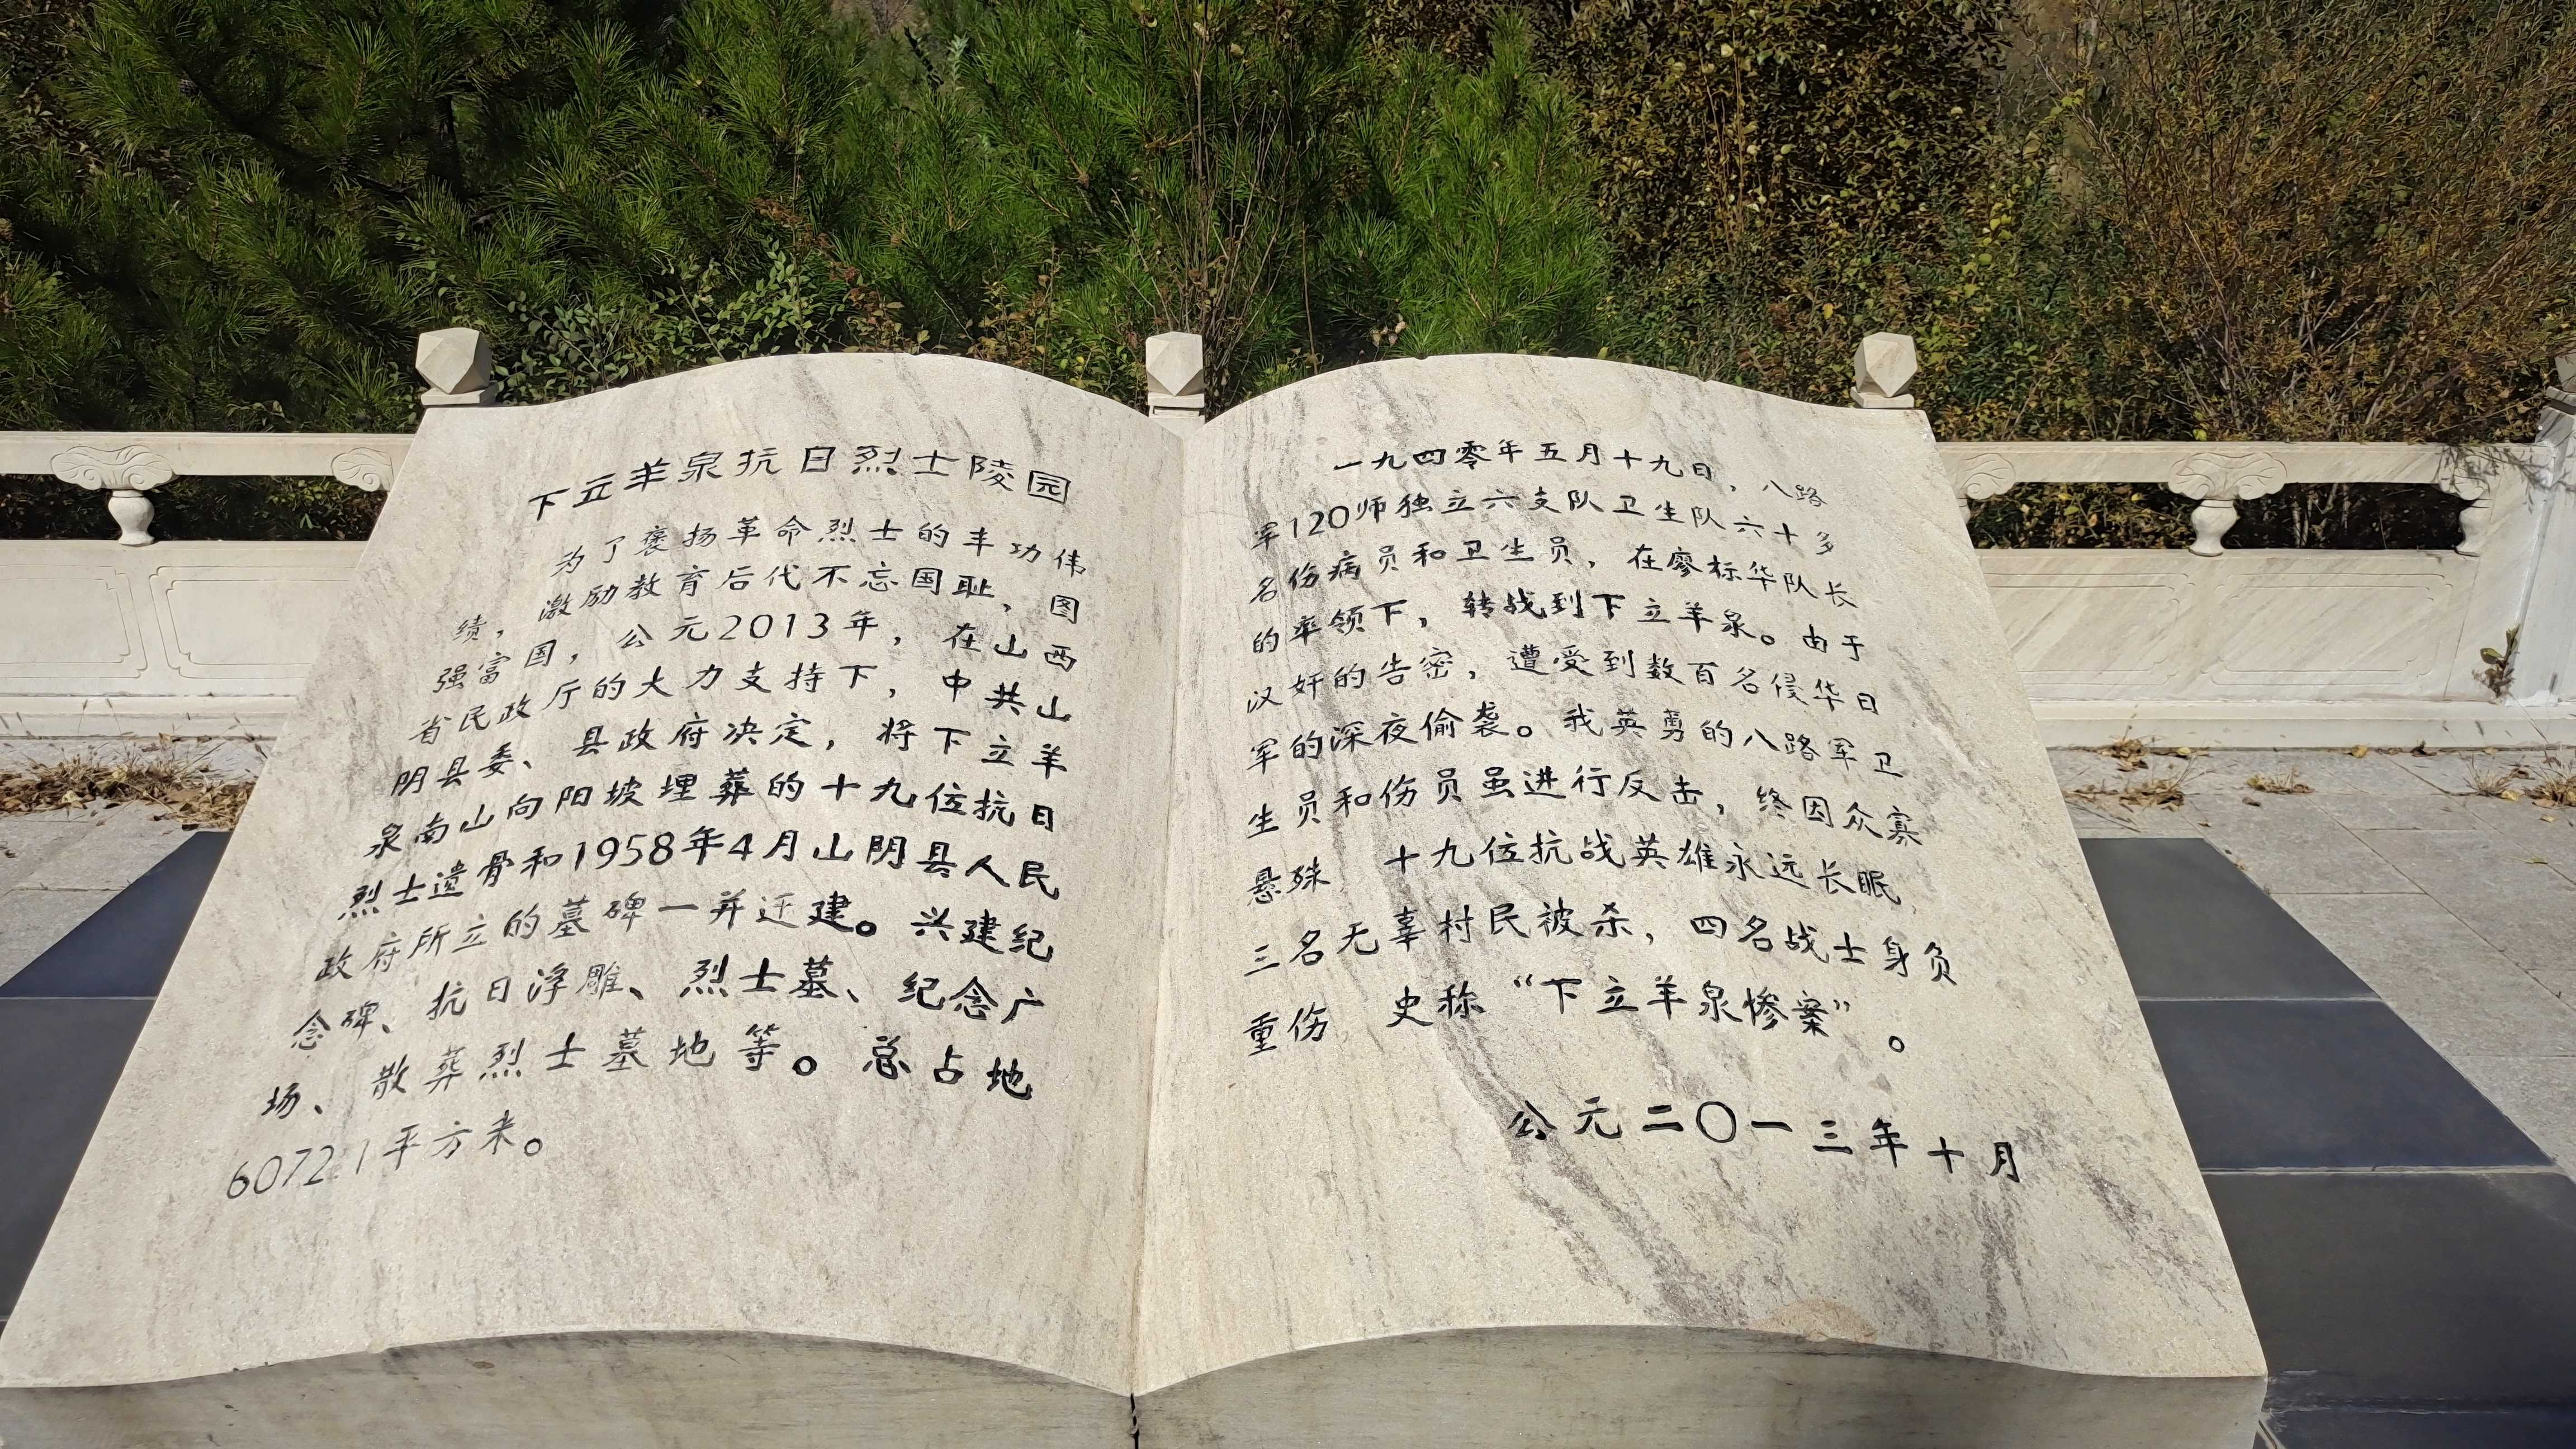 下立羊泉抗日烈士陵园
为了褒扬革命烈士的丰功伟
绩，激励教育后代不忘国耻，图
强富国，公元2013年，在山西
省民政厅的大力支持下，中共山
阴县委、县政府决定，将下立羊
泉南山向阳坡埋葬的十九位抗日
烈士遗骨和1958年4月山阴县人民
政府所立的墓碑一并迁建。兴建纪
念碑、抗日浮雕、烈士墓、纪念广
场、散葬烈士墓地等。总占地
6072.1平方米。
一九四零年五月十九日，八路
军120师独立六支队卫生队六十多
名伤病员和卫生员，在廖标华队长
的率领下，转战到下立羊泉。由于
汉奸的告密，遭受到数百名侵华日
军的深夜偷袭。我英勇的八路军卫
生员和伤员虽进行反击，终因众寡
悬殊，十九位抗战英雄永远长眠，
三名无辜村民被杀，四名战士身负
重伤，史称“下立羊泉惨案”。
公元二〇一三年十月